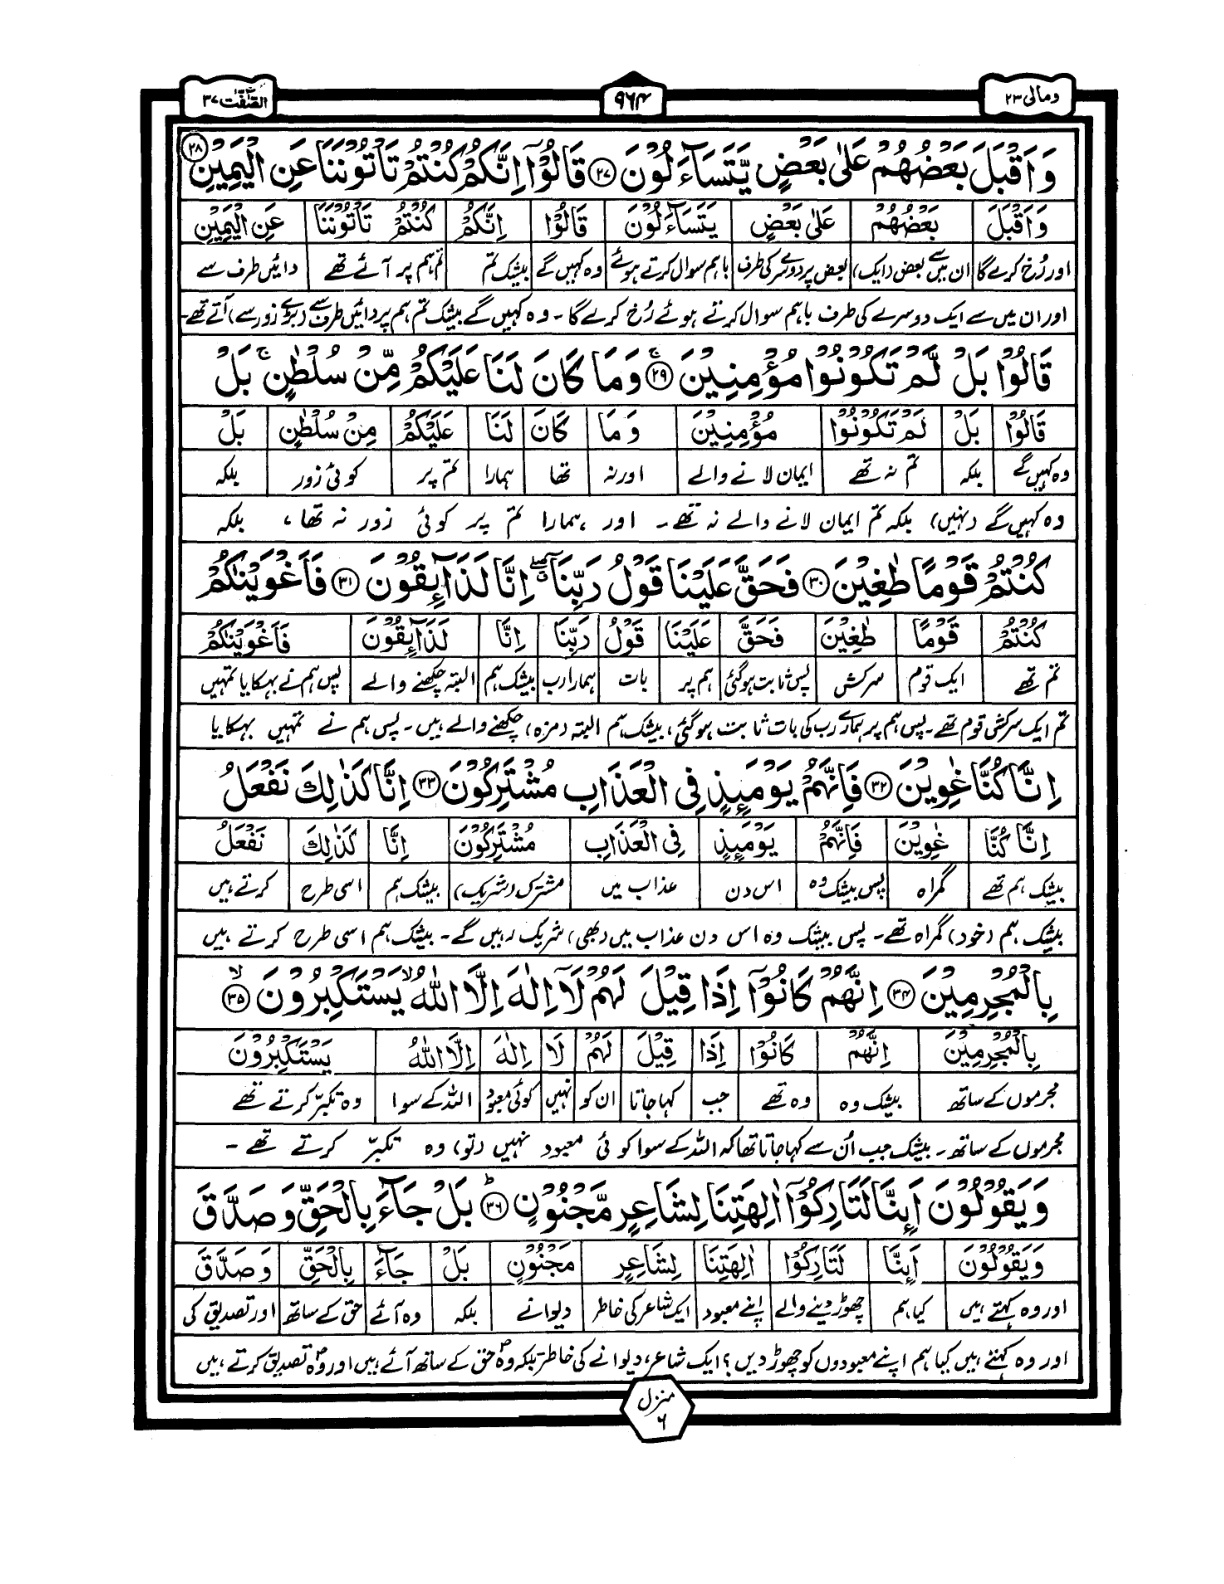 ومالی ۲۳
۹۶۴
الصّٰٓفّٰت ۳۷
وَاَقْبَلَ بَعْضُهُمْ عَلٰى بَعْضٍ يَّتَسَآءَلُوْنَ ﴿۲۷﴾ قَالُوْٓا اِنَّكُمْ كُنْتُمْ تَاْتُوْنَنَا عَنِ الْيَمِيْنِ ﴿۲۸﴾
وَاَقْبَلَ بَعْضُهُمْ عَلٰى بَعْضٍ يَتَسَآءَلُوْنَ قَالُوْٓا اِنَّكُمْ كُنْتُمْ تَاْتُوْنَنَا عَنِ الْيَمِيْنِ
اور رُخ کرے گا ان میں سے بعض (ایک) بعض پر دوسرے کی طرف باہم سوال کرتے ہوئے وہ کہیں گے بیشک تم تم ہم پر آتے تھے دائیں طرف سے
اور ان میں سے ایک دوسرے کی طرف باہم سوال کرتے ہوئے رُخ کرے گا۔ وہ کہیں گے بیشک تم ہم پر دائیں طرف سے (بڑے زور سے) آتے تھے۔
قَالُوْا بَلْ لَّمْ تَكُوْنُوْا مُؤْمِنِيْنَ ﴿۲۹﴾ وَمَا كَانَ لَنَا عَلَيْكُمْ مِّنْ سُلْطٰنٍ ۚ بَلْ
قَالُوْا بَلْ لَمْ تَكُوْنُوْا مُؤْمِنِيْنَ وَمَا كَانَ لَنَا عَلَيْكُمْ مِنْ سُلْطٰنٍ بَلْ
وہ کہیں گے بلکہ تم نہ تھے ایمان لانے والے اور نہ تھا ہمارا تم پر کوئی زور بلکہ
وہ کہیں گے (نہیں) بلکہ تم ایمان لانے والے نہ تھے۔ اور ہمارا تم پر کوئی زور نہ تھا، بلکہ
كُنْتُمْ قَوْمًا طٰغِيْنَ ﴿۳۰﴾ فَحَقَّ عَلَيْنَا قَوْلُ رَبِّنَآ ۖ اِنَّا لَذَآئِقُوْنَ ﴿۳۱﴾ فَاَغْوَيْنٰكُمْ
كُنْتُمْ قَوْمًا طٰغِيْنَ فَحَقَّ عَلَيْنَا قَوْلُ رَبِّنَا اِنَّا لَذَآئِقُوْنَ فَاَغْوَيْنٰكُمْ
تم تھے ایک قوم سرکش پس ثابت ہوگئی ہم پر بات ہمارا رب بیشک ہم البتہ چکھنے والے پس ہم نے بہکایا تمہیں
تم ایک سرکش قوم تھے۔ پس ہم پر ہمارے رب کی بات ثابت ہوگئی، بیشک ہم البتہ (مزہ) چکھنے والے ہیں۔ پس ہم نے تمہیں بہکایا
اِنَّا كُنَّا غٰوِيْنَ ﴿۳۲﴾ فَاِنَّهُمْ يَوْمَئِذٍ فِى الْعَذَابِ مُشْتَرِكُوْنَ ﴿۳۳﴾ اِنَّا كَذٰلِكَ نَفْعَلُ
اِنَّا كُنَّا غٰوِيْنَ فَاِنَّهُمْ يَوْمَئِذٍ فِى الْعَذَابِ مُشْتَرِكُوْنَ اِنَّا كَذٰلِكَ نَفْعَلُ
بیشک ہم تھے گمراہ پس بیشک وہ اس دن عذاب میں مشترک (شریک) بیشک ہم اسی طرح کرتے ہیں
بیشک ہم (خود) گمراہ تھے۔ پس بیشک وہ اس دن عذاب میں (بھی) شریک رہیں گے۔ بیشک ہم اسی طرح کرتے ہیں
بِالْمُجْرِمِيْنَ ﴿۳۴﴾ اِنَّهُمْ كَانُوْٓا اِذَا قِيْلَ لَهُمْ لَآ اِلٰهَ اِلَّا اللّٰهُ ۙ يَسْتَكْبِرُوْنَ ﴿۳۵﴾ ۙ
بِالْمُجْرِمِيْنَ اِنَّهُمْ كَانُوْٓا اِذَا قِيْلَ لَهُمْ لَآ اِلٰهَ اِلَّا اللّٰهُ يَسْتَكْبِرُوْنَ
مجرموں کے ساتھ بیشک وہ وہ تھے جب کہا جاتا ان کو نہیں کوئی معبود اللہ کے سوا وہ تکبر کرتے تھے
مجرموں کے ساتھ۔ بیشک جب اُن سے کہا جاتا تھا کہ اللہ کے سوا کوئی معبود نہیں (تو) وہ تکبّر کرتے تھے۔
وَيَقُوْلُوْنَ اَئِنَّا لَتَارِكُوْٓا اٰلِهَتِنَا لِشَاعِرٍ مَّجْنُوْنٍ ﴿۳۶﴾ ؕ بَلْ جَآءَ بِالْحَقِّ وَصَدَّقَ
وَيَقُوْلُوْنَ اَئِنَّا لَتَارِكُوْٓا اٰلِهَتِنَا لِشَاعِرٍ مَجْنُوْنٍ بَلْ جَآءَ بِالْحَقِّ وَصَدَّقَ
اور وہ کہتے ہیں کیا ہم چھوڑ دینے والے اپنے معبود ایک شاعر کی خاطر دیوانے بلکہ وہ آئے حق کے ساتھ اور تصدیق کی
اور وہ کہتے ہیں کیا ہم اپنے معبودوں کو چھوڑ دیں؟ ایک شاعر، دیوانے کی خاطر بلکہ وہؐ حق کے ساتھ آئے ہیں اور وہؐ تصدیق کرتے ہیں
منزل ۶